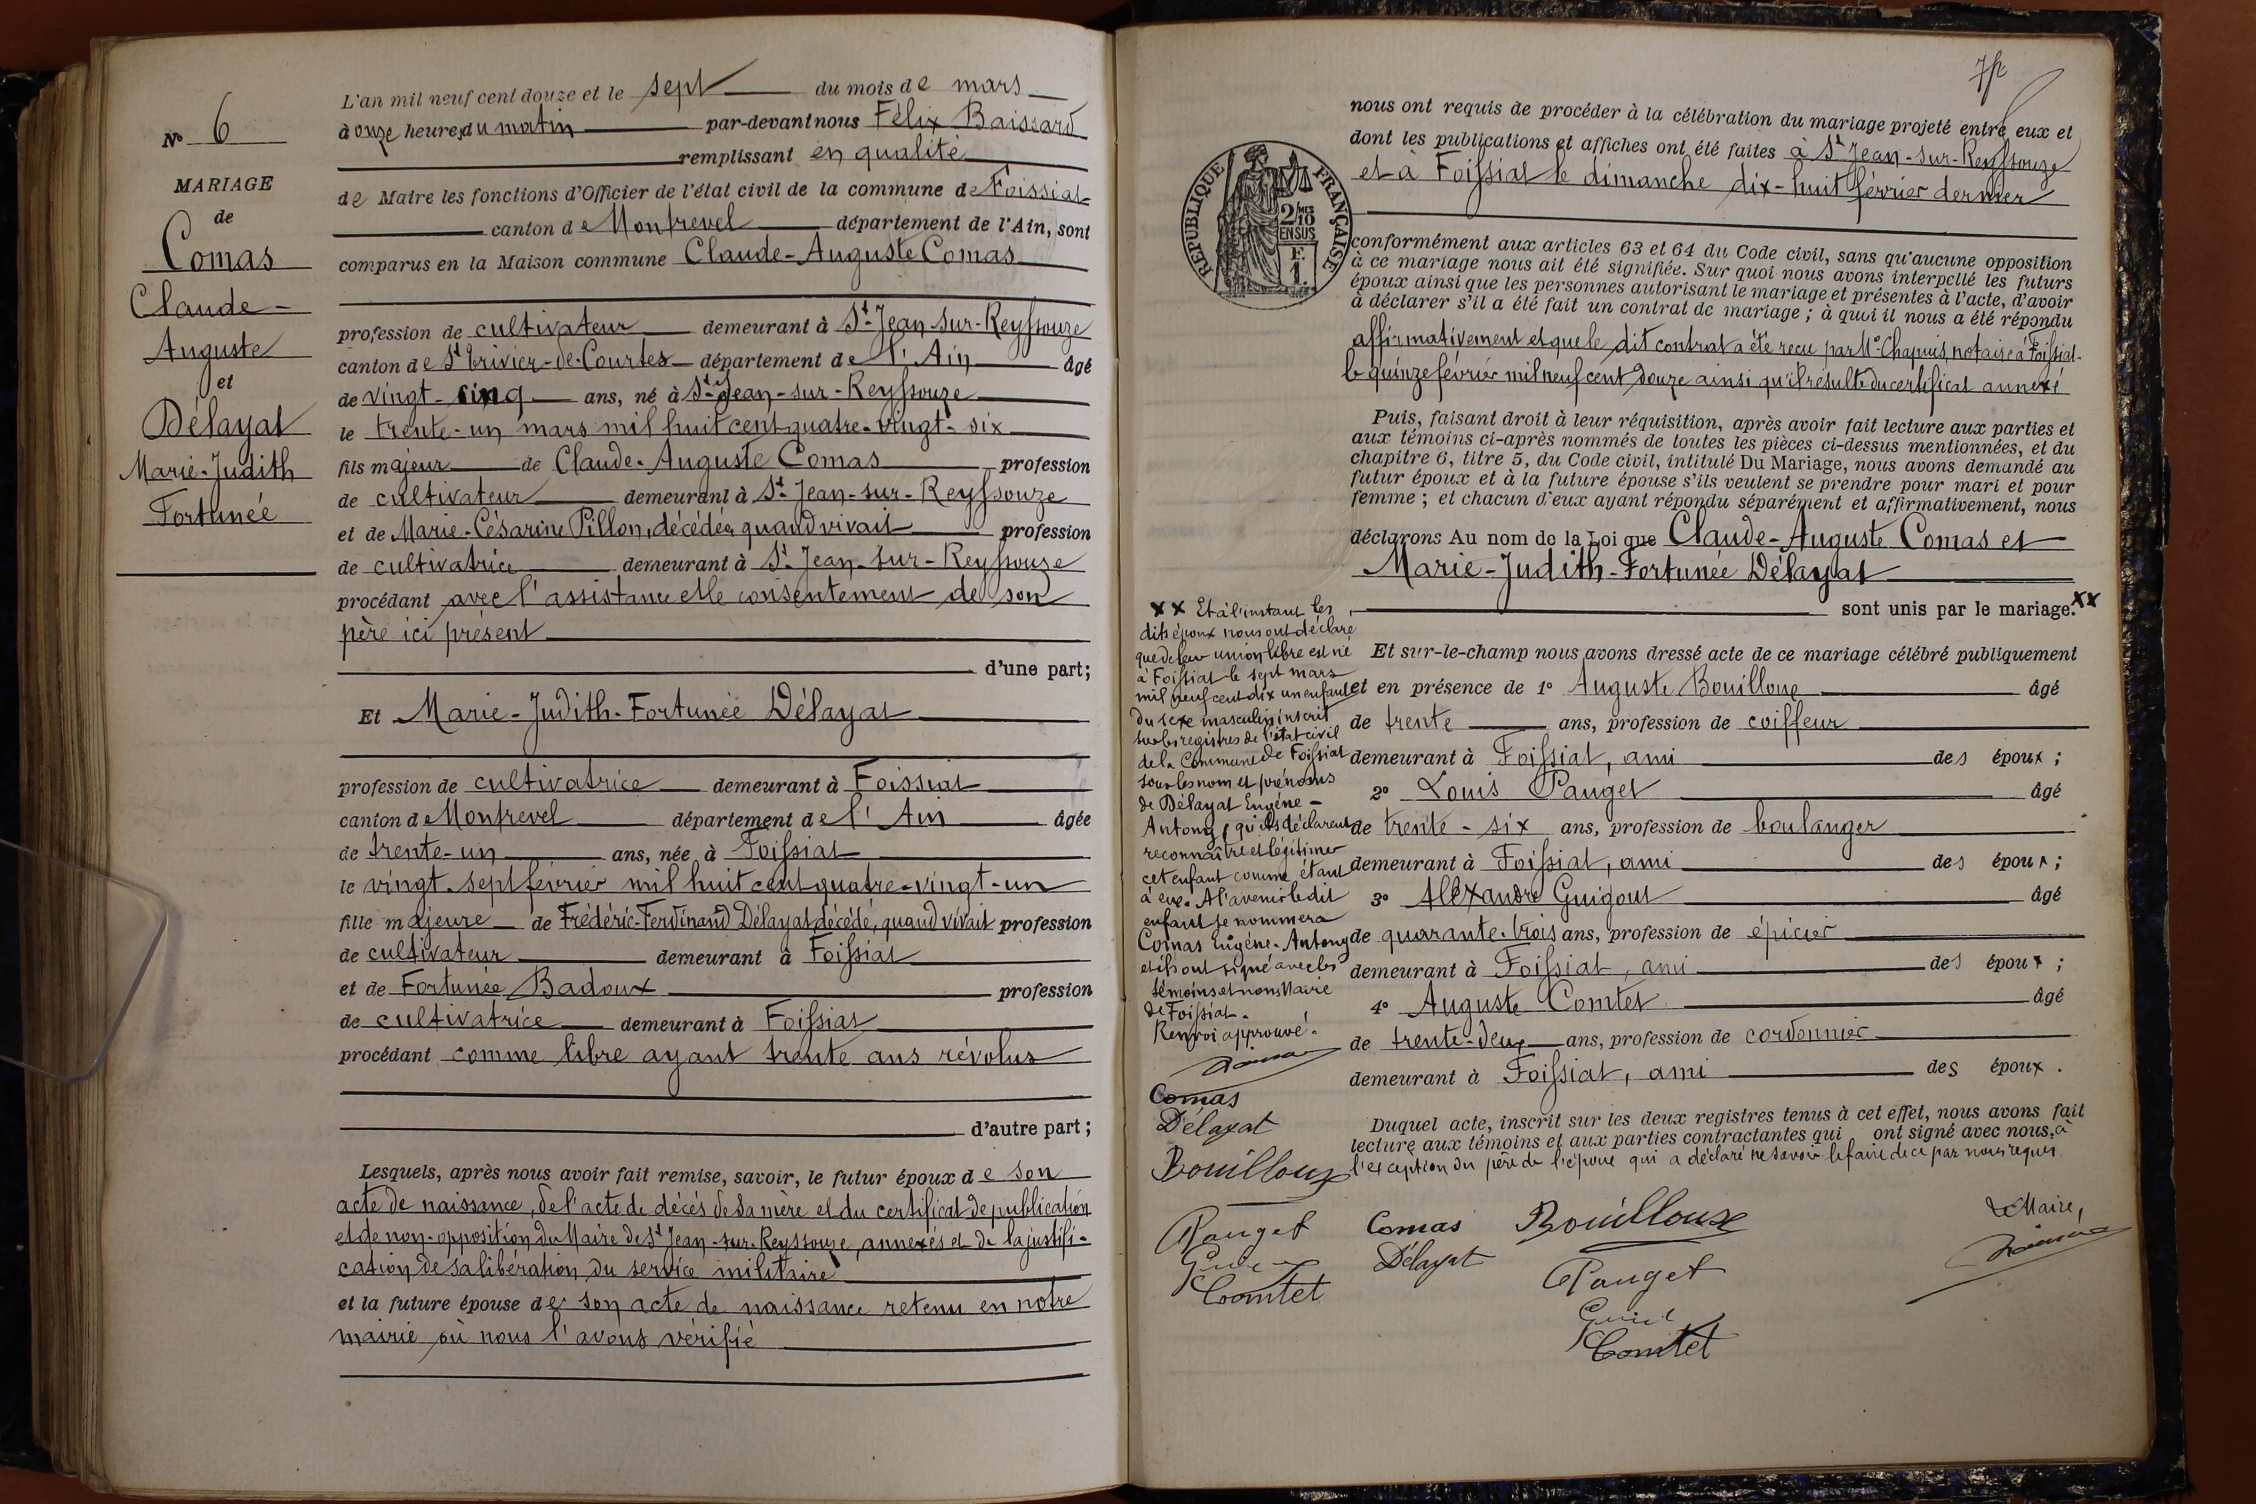 N° 6
MARIAGE
de
Comas
Claude-
Auguste
et
Délayat
Marie-Judith
Fortunée
L'an mil neuf cent douze et le sept du mois de mars
à onze heures du matin par-devant nous Félix Baissard
remplissant en qualité
de Maire les fonctions d'Officier de l'état civil de la commune de Foissiat
canton de Montrevel département de l'Ain, sont
comparus en la Maison commune Claude-Auguste Comas
profession de cultivateur demeurant à St Jean-sur-Reyssouze
canton de St Trivier-de-Courtes département de l'Ain âgé
de vingt-cinq ans, né à St Jean-sur-Reyssouze
le trente-un mars mil huit cent quatre-vingt-six
fils majeur de Claude-Auguste Comas profession
de cultivateur demeurant à St Jean-sur-Reyssouze
et de Marie-Césarine Pillon, décédée quand vivait profession
de cultivatrice demeurant à St Jean-sur-Reyssouze
procédant avec l'assistance et le consentement de son
père ici présent
d'une part;
Et Marie-Judith-Fortunée Délayat
profession de cultivatrice demeurant à Foissiat
canton de Montrevel département de l'Ain âgée
de trente-un ans, née à Foissiat
le vingt-sept février mil huit cent quatre-vingt-un
fille majeure de Frédéric-Ferdinand Délayat décédé, quand vivait profession
de cultivateur demeurant à Foissiat
et de Fortunée Badoux profession
de cultivatrice demeurant à Foissiat
procédant comme libre ayant trente ans révolus
d'autre part;
Lesquels, après nous avoir fait remise, savoir, le futur époux de son
acte de naissance, de l'acte de décès de sa mère et du certificat de publication
et de non-opposition du Maire de St Jean-sur-Reyssouze, annexés et de la justifi-
cation de sa libération du service militaire
et la future épouse de son acte de naissance retenu en notre
mairie où nous l'avons vérifié
nous ont requis de procéder à la célébration du mariage projeté entre eux et
dont les publications et affiches ont été faites à St Jean-sur-Reyssouze
et à Foissiat le dimanche dix-huit février dernier
RÉPUBLIQUE FRANÇAISE
2/10 MES
EN SUS
F.
1.
conformément aux articles 63 et 64 du Code civil, sans qu'aucune opposition
à ce mariage nous ait été signifiée. Sur quoi nous avons interpellé les futurs
époux ainsi que les personnes autorisant le mariage et présentes à l'acte, d'avoir
à déclarer s'il a été fait un contrat de mariage; à quoi il nous a été répondu
affirmativement et que le dit contrat a été reçu par Me Chapuis, notaire à Foissiat
le quinze février mil neuf cent douze ainsi qu'il résulte du certificat annexé
Puis, faisant droit à leur réquisition, après avoir fait lecture aux parties et
aux témoins ci-après nommés de toutes les pièces ci-dessus mentionnées, et du
chapitre 6, titre 5, du Code civil, intitulé Du Mariage, nous avons demandé au
futur époux et à la future épouse s'ils veulent se prendre pour mari et pour
femme; et chacun d'eux ayant répondu séparément et affirmativement, nous
déclarons Au nom de la Loi que Claude-Auguste Comas et
Marie-Judith-Fortunée Délayat
sont unis par le mariage. xx
Et sur-le-champ nous avons dressé acte de ce mariage célébré publiquement
et en présence de 1° Auguste Bouilloux âgé
de trente ans, profession de coiffeur
demeurant à Foissiat, ami des époux;
2° Louis Pauget âgé
de trente-six ans, profession de boulanger
demeurant à Foissiat, ami des époux;
3° Alexandre Guigout âgé
de quarante-trois ans, profession de épicier
demeurant à Foissiat, ami des époux;
4° Auguste Comtet âgé
de trente-deux ans, profession de cordonnier
demeurant à Foissiat, ami des époux.
Duquel acte, inscrit sur les deux registres tenus à cet effet, nous avons fait
lecture aux témoins et aux parties contractantes qui ont signé avec nous, à
l'exception du père de l'époux qui a déclaré ne savoir le faire de ce par nous requis
xx Et à l'instant les
dits époux nous ont déclaré
que de leur union libre est né
à Foissiat le sept mars
mil neuf cent dix un enfant
du sexe masculin inscrit
sur les registres de l'état civil
de la Commune de Foissiat
sous les nom et prénoms
de Délayat Eugène-
Antony, qu'ils déclarent
reconnaître et légitimer
cet enfant comme étant
à eux. A l'avenir le dit
enfant se nommera
Comas Eugène-Antony
et ils ont signé avec les
témoins et nous Maire
de Foissiat.
Renvoi approuvé.
Comas
Délayat
Bouilloux
Pauget
Comtet
Comas Bouilloux
Délayat
Pauget
Comtet
Le Maire,